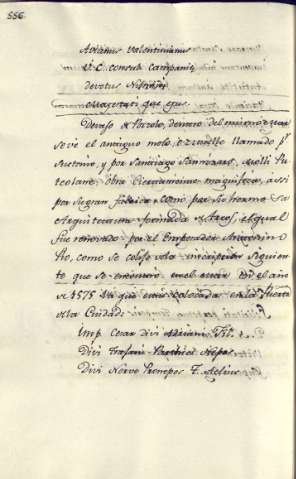 556.
Avianus Valentinianus
V. C. consul. Campaniæ
devotus Numini
Majestati que ejus.
Debaxo de Pozzolo, dentro del mismo mar
se ve el antiguo molo, o muelle llamado pr
Suetonio, y por Santiago Sannazaro, molli Pu
teolane, obra ciertamente magnifica, assi
por su gran fabrica, como por su hermosa
Arquitectura formada de Arcos, el qual
fue renovado por el Emperador Antonino
Pio, como se colije de la inscripcion siguiente
que se encontro en el mar en el año
de 1575 la que está colocada en la Puerta
de la Ciudad:
Imp. Cesar divi Adriani Fil.
Divi Trajani Parthici Nepos
Divi Nerve Pronepos T. Aelius